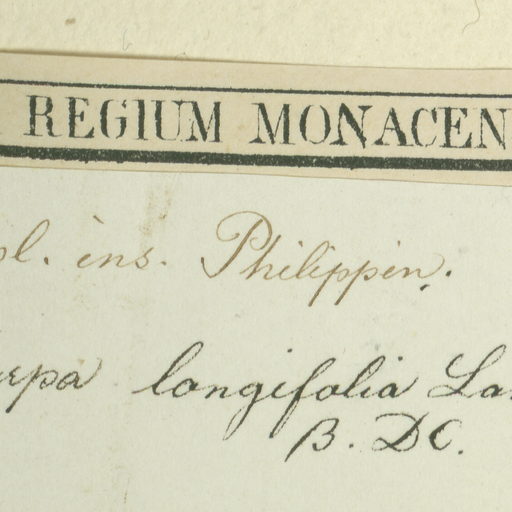 REGIUM MONACEN
pl. ins. Philippin.
arpa longifolia La
β. DC.